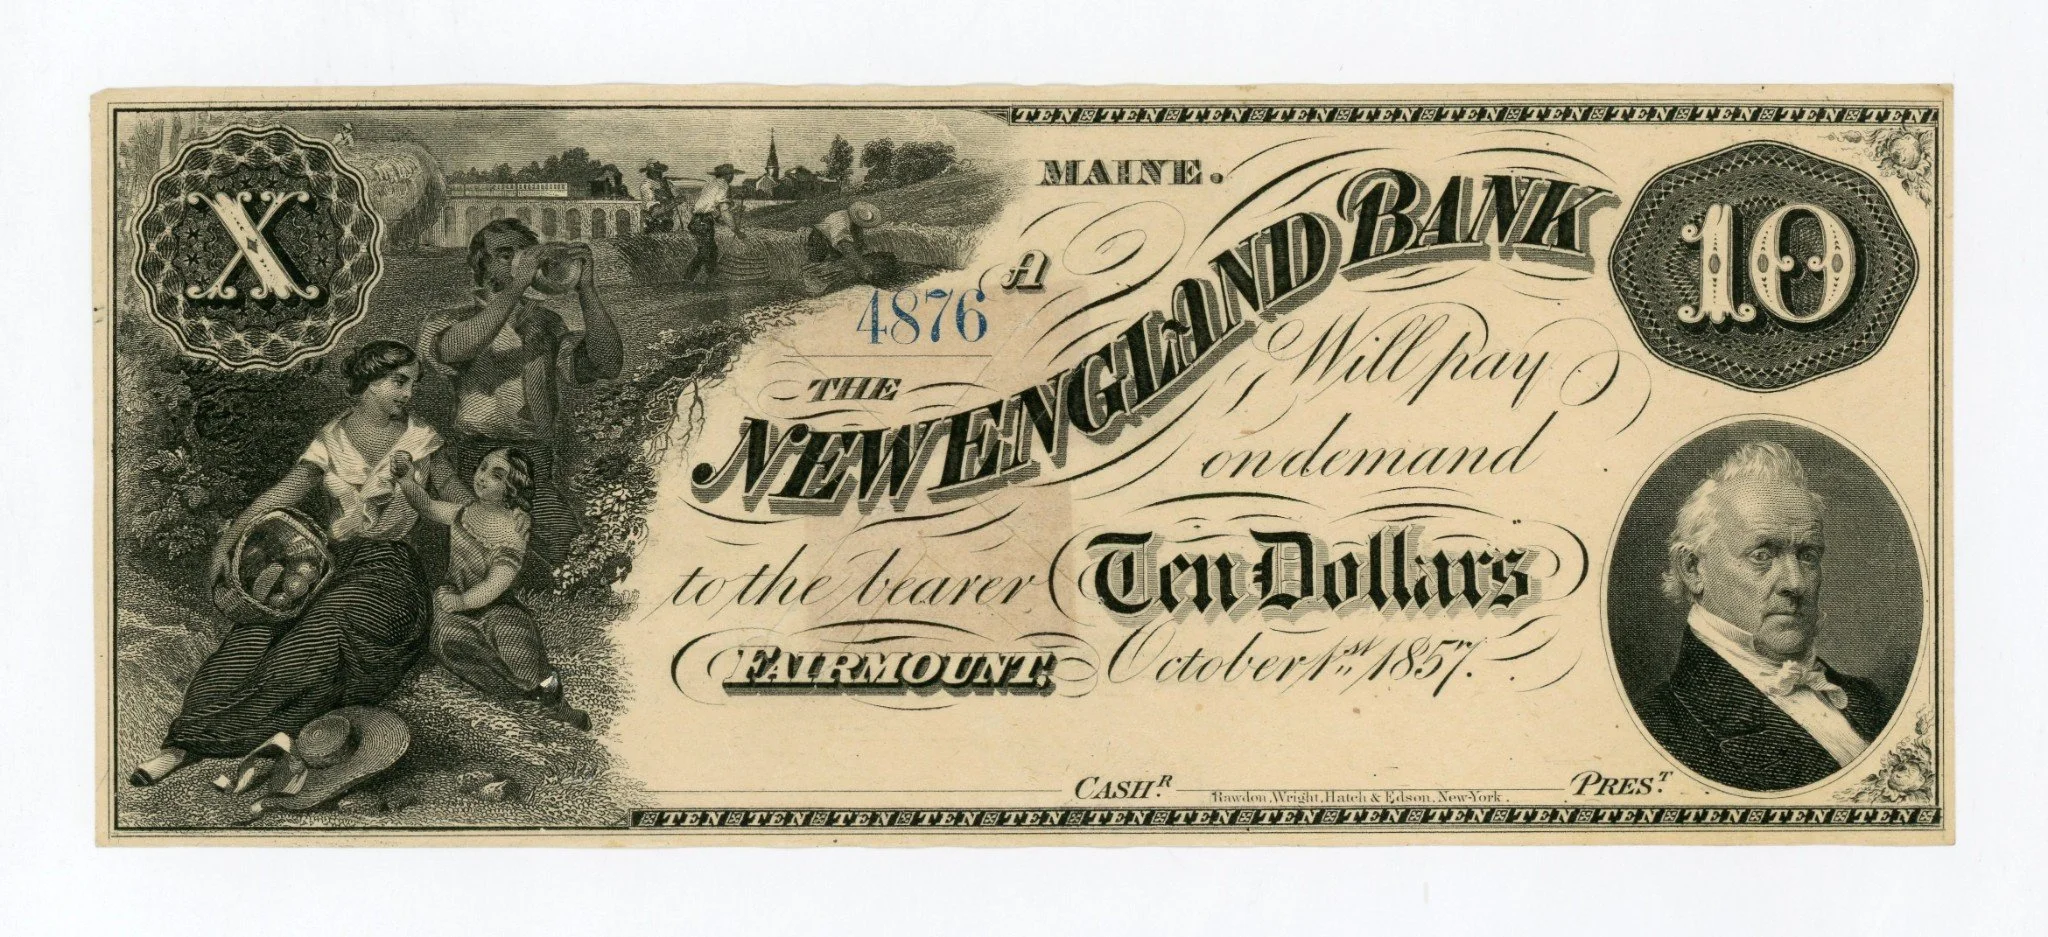 TEN TEN TEN TEN TEN TEN TEN TEN TEN TEN TEN
X
MAINE.
10
A
4876
THE
NEW ENGLAND BANK
Will pay
on demand
to the bearer Ten Dollars
FAIRMOUNT. October 1st 1857.
CASHR. PREST.
Rawdon, Wright, Hatch & Edson, New-York.
TEN TEN TEN TEN TEN TEN TEN TEN TEN TEN TEN TEN TEN TEN TEN